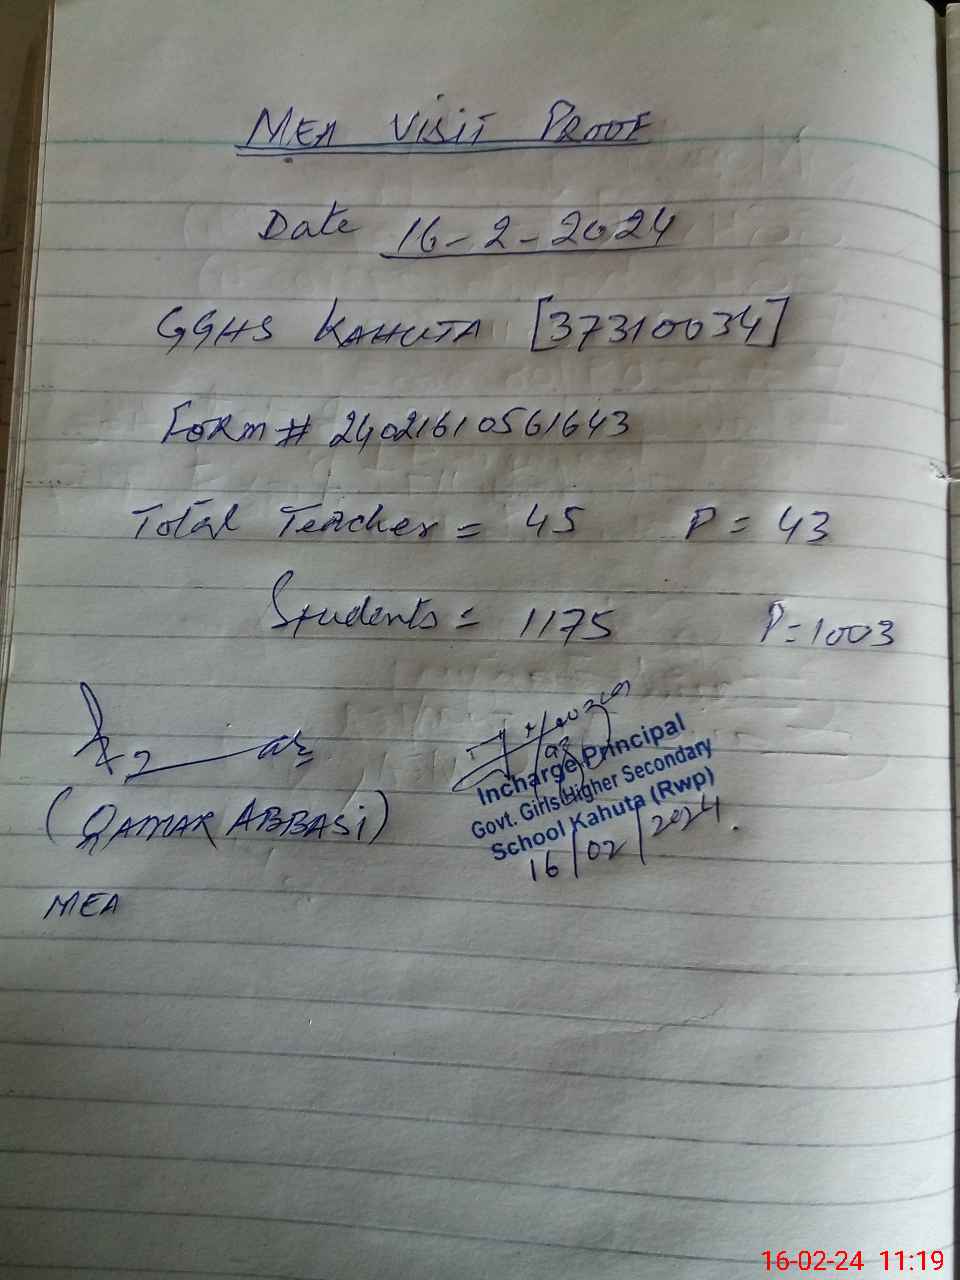 MEA VISIT PROOF
Date 16-2-2024
GGHS KAHUTA [37310034]
Form # 24021610561643
Total Teacher = 45 P = 43
Students = 1175 P = 1003
(QAMAR ABBASI)
MEA
Incharge Principal
Govt. Girls Higher Secondary
School Kahuta (Rwp)
16/02/2024.
16-02-24 11:19